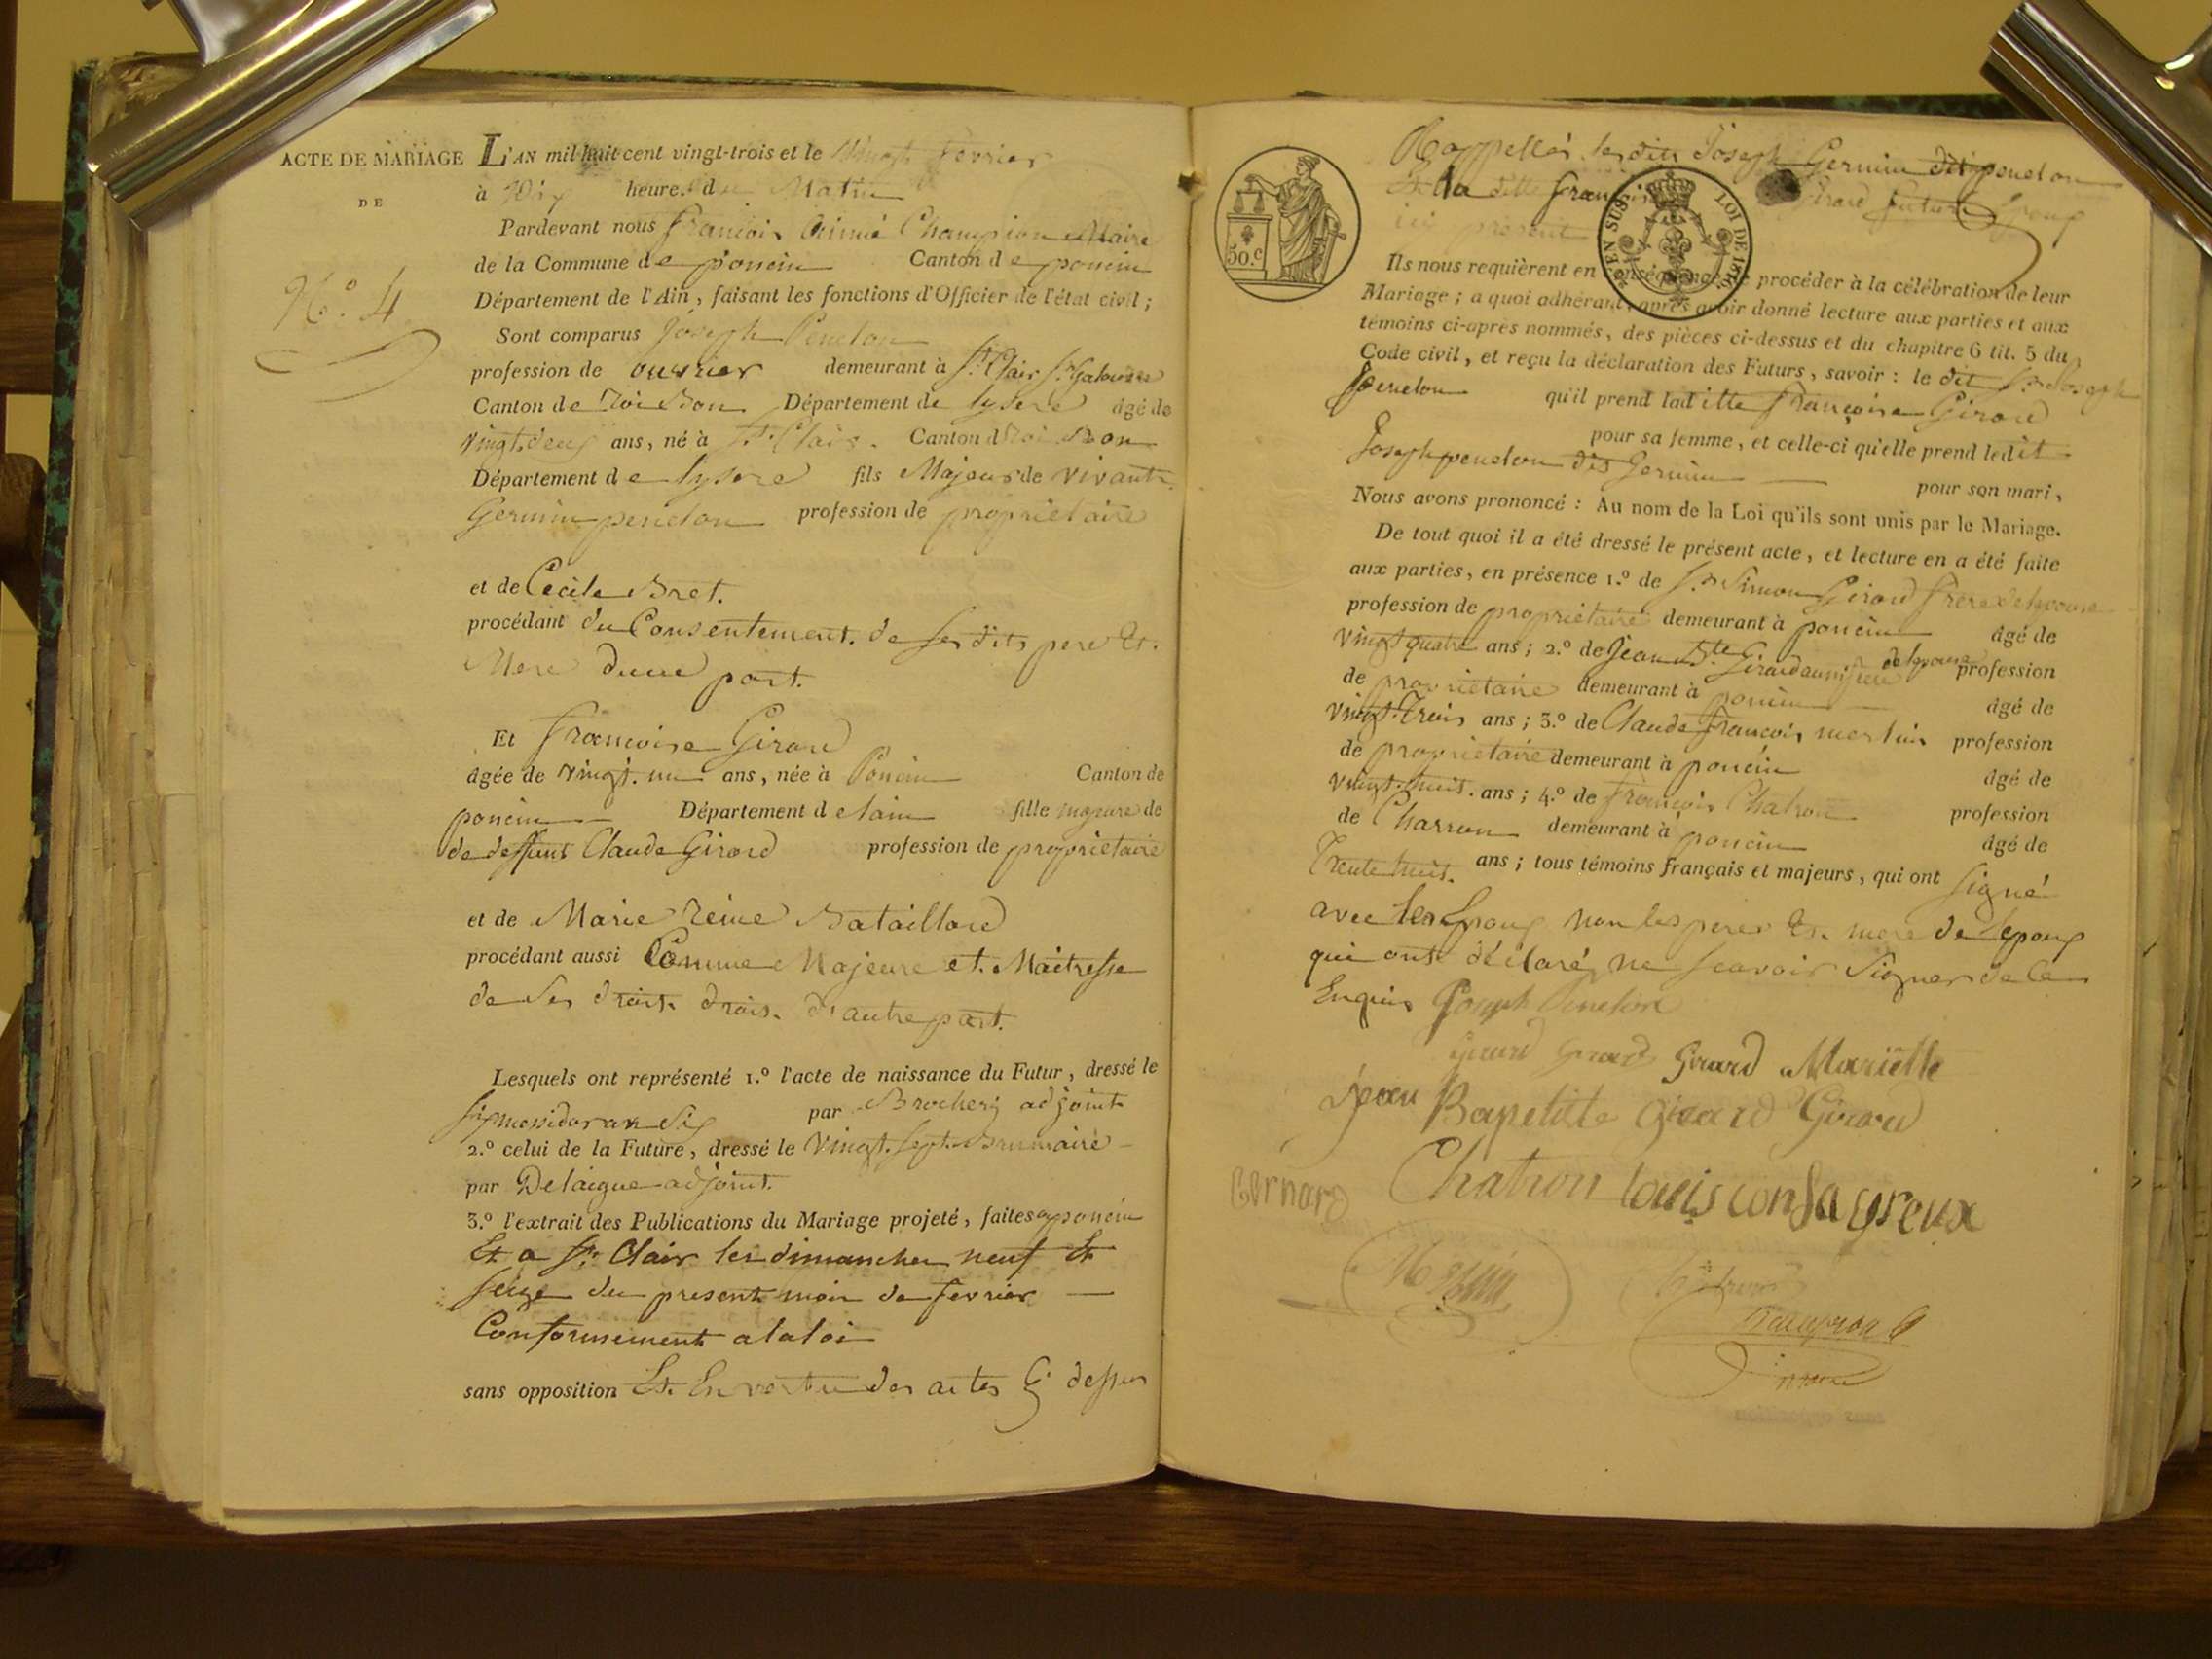 ACTE DE MARIAGE
DE
N.º 4
L'AN mil huit cent vingt-trois et le Vingt fevrier
à Dix heure. du Matin
Pardevant nous françois Aimé Champion Maire
de la Commune de poncin Canton de poncin
Département de l'Ain, faisant les fonctions d'Officier de l'état civil ;
Sont comparus Joseph Penelon
profession de ouvrier demeurant à St. Clair
Canton de Département de lysere âgé de
vingt deux ans, né à St. Clair. Canton d
Département de lysere fils Majeur de vivants
Germin penelon profession de propriétaire
et de Cecile Bret.
procédant du Consentement. de ses dits pere Et.
Mere d'une part.
Et francoise Girard
âgée de vingt. un ans, née à Poncin Canton de
poncin Département de lain fille majeure de
de deffunt Claude Girard profession de propriétaire
et de Marie Reine Bataillard
procédant aussi Comme Majeure et. Maitresse
de Ses droits. drois. d'autre part.
Lesquels ont représenté 1.º l'acte de naissance du Futur, dressé le
six messidor an Six par Brochery adjoint
2.º celui de la Future, dressé le vingt. sept. Brumaire
par Delaigue adjoint.
3.º l'extrait des Publications du Mariage projeté, faites a poncin
Et a St. Clair les dimanches neuf Et
seize du present mois de fevrier
Conformement a la loi
sans opposition Et. En vertu des actes Cy dessus
50.c
EN SUS
LOI DE 1816
Rappellés les dits Joseph Germin dit penelon
Et la ditte françoise Girard futurs Epoux
ici present
Ils nous requièrent en conséquence de procéder à la célébration de leur
Mariage ; a quoi adhérant, après avoir donné lecture aux parties et aux
témoins ci-après nommés, des pièces ci-dessus et du chapitre 6 tit. 5 du
Code civil, et reçu la déclaration des Futurs, savoir : le dit Sr. Joseph
penelon qu'il prend laditte françoise Girard
pour sa femme, et celle-ci qu'elle prend ledit
Joseph penelon dis Germin pour son mari,
Nous avons prononcé : Au nom de la Loi qu'ils sont unis par le Mariage.
De tout quoi il a été dressé le présent acte, et lecture en a été faite
aux parties, en présence 1.º de Sr. Simon Girard frere de lepouse
profession de propriétaire demeurant à poncin âgé de
vingt quatre ans ; 2.º de Jean Bte. Girard aussi frere de lepouse profession
de propriétaire demeurant à poncin âgé de
vingt. Trois ans ; 3.º de Claude françois merlin profession
de propriétaire demeurant à poncin âgé de
vingt. huit. ans ; 4.º de françois Chatron profession
de Charron demeurant à poncin âgé de
Trente huit. ans ; tous témoins français et majeurs, qui ont signé
avec les Epoux non les peres Et. mere de lepoux
qui ont déclaré ne scavoir signer de ce
Enquis Joseph Penelon
Girard Girard Girard Mariette
jean Bapetitte girard Girard
Bernard Chatron louis consagreux